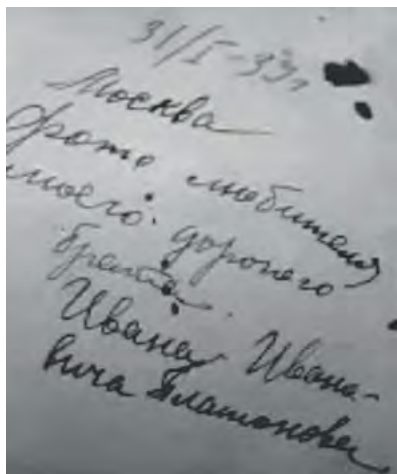 31/I-33г
Москва
Фото любителя
моего дорогого
брата.
Ивана Ивано-
вича Платонова